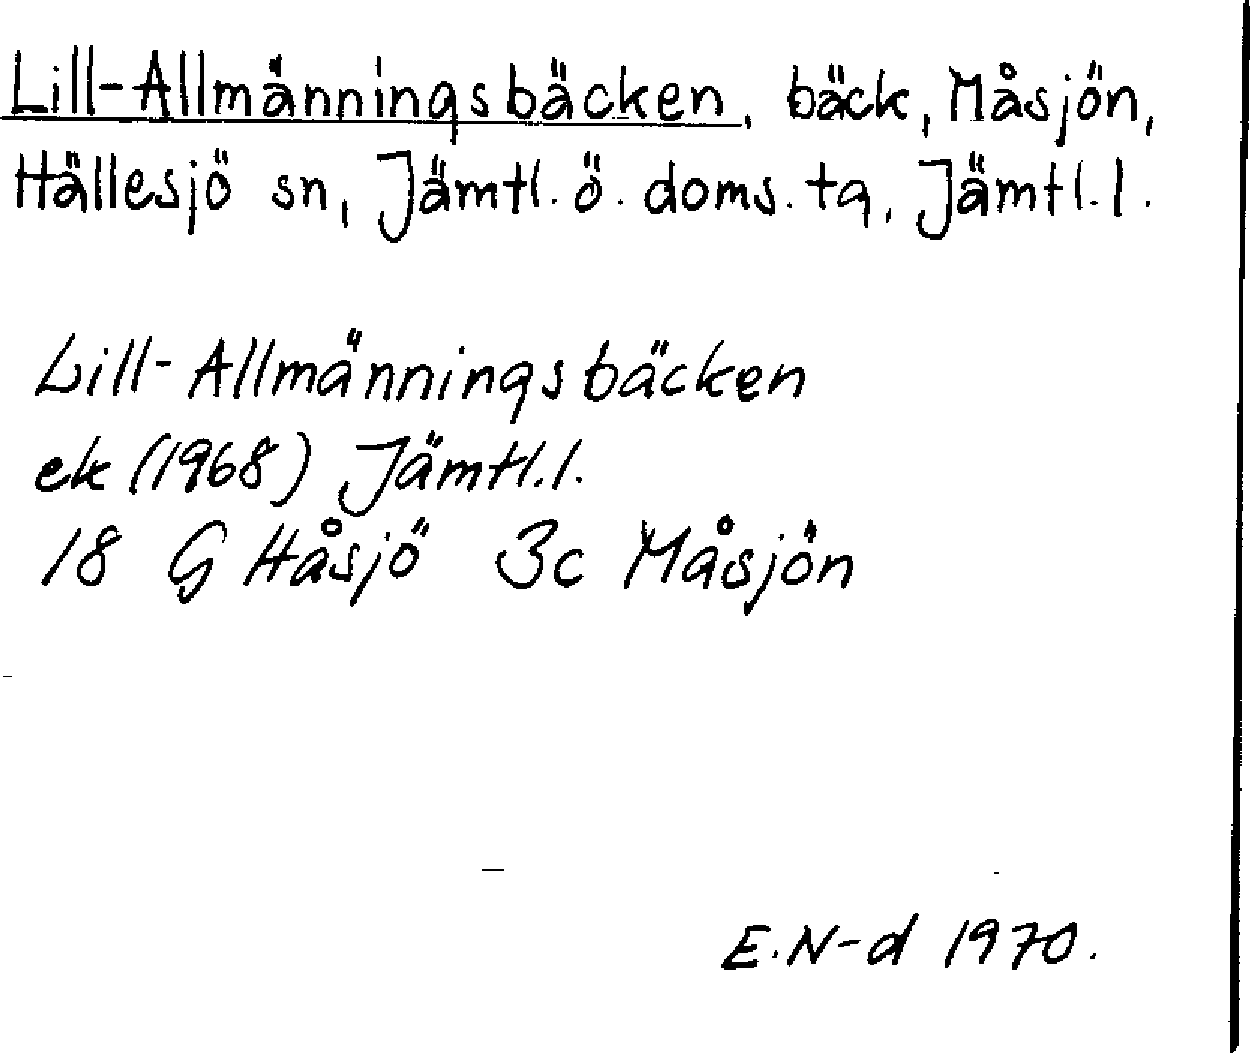 Lill-Allmänningsbäcken, bäck, Måsjön,
Hällesjö sn, Jämtl. ö. doms. tg, Jämtl. l.
Lill-Allmänningsbäcken
ek (1968) Jämtl. l.
18 G Håsjö 3c Måsjön
E.N-d 1970.